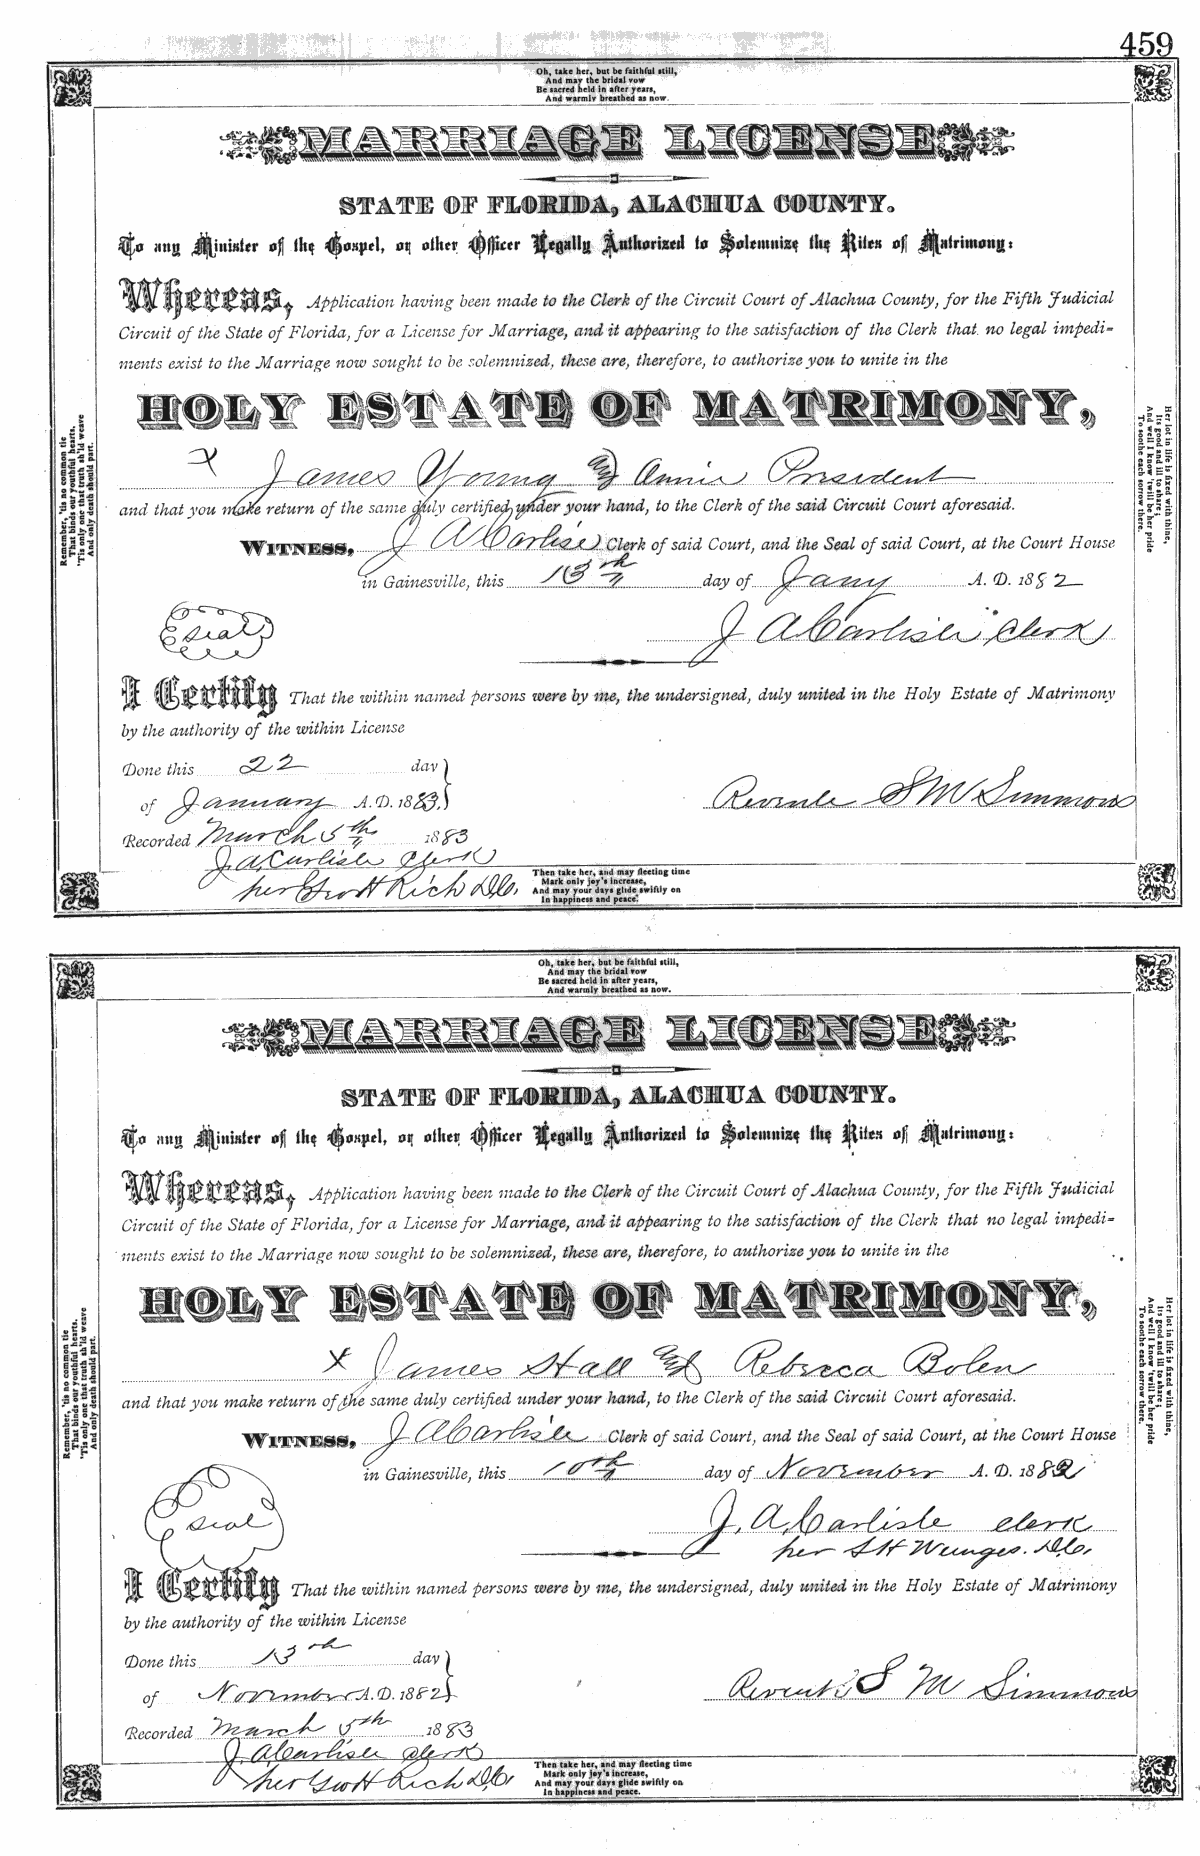 459
Oh, take her, but be faithful still,
And may the bridal vow
Be sacred held in after years,
And warmly breathed as now.
MARRIAGE LICENSE
STATE OF FLORIDA, ALACHUA COUNTY.
To any Minister of the Gospel, or other Officer Legally Authorized to Solemnize the Rites of Matrimony:
Whereas, Application having been made to the Clerk of the Circuit Court of Alachua County, for the Fifth Judicial
Circuit of the State of Florida, for a License for Marriage, and it appearing to the satisfaction of the Clerk that no legal impedi-
ments exist to the Marriage now sought to be solemnized, these are, therefore, to authorize you to unite in the
HOLY ESTATE OF MATRIMONY,
X James Young and Annie President
and that you make return of the same duly certified under your hand, to the Clerk of the said Circuit Court aforesaid.
WITNESS, J A Carlisle Clerk of said Court, and the Seal of said Court, at the Court House
in Gainesville, this 13th day of Jany A. D. 1882
Seal
J A Carlisle Clerk
I Certify That the within named persons were by me, the undersigned, duly united in the Holy Estate of Matrimony
by the authority of the within License
Done this 22 day
of January A.D. 1883.
S M Simmons
Recorded March 5th 1883
J. A. Carlisle Clerk
per Geo H Rich D.C.
Then take her, and may fleeting time
Mark only joy's increase,
And may your days glide swiftly on
In happiness and peace.
Remember, 'tis no common tie
That binds our youthful hearts,
'Tis only one that truth sh'ld weave
And only death should part.
Her lot in life is fixed with thine,
Its good and ill to share;
And well I know 'twill be her pride
To soothe each sorrow there.
Oh, take her, but be faithful still,
And may the bridal vow
Be sacred held in after years,
And warmly breathed as now.
MARRIAGE LICENSE
STATE OF FLORIDA, ALACHUA COUNTY.
To any Minister of the Gospel, or other Officer Legally Authorized to Solemnize the Rites of Matrimony:
Whereas, Application having been made to the Clerk of the Circuit Court of Alachua County, for the Fifth Judicial
Circuit of the State of Florida, for a License for Marriage, and it appearing to the satisfaction of the Clerk that no legal impedi-
ments exist to the Marriage now sought to be solemnized, these are, therefore, to authorize you to unite in the
HOLY ESTATE OF MATRIMONY,
X James Hall and Rebecca Bolen
and that you make return of the same duly certified under your hand, to the Clerk of the said Circuit Court aforesaid.
WITNESS, J A Carlisle Clerk of said Court, and the Seal of said Court, at the Court House
in Gainesville, this 10th day of November A. D. 1882
Seal
J. A. Carlisle clerk
per S H D.C.
I Certify That the within named persons were by me, the undersigned, duly united in the Holy Estate of Matrimony
by the authority of the within License
Done this 13th day
of November A.D. 1882
S M Simmons
Recorded March 5th 1883
J. A. Carlisle Clerk
per Geo H Rich D.C.
Then take her, and may fleeting time
Mark only joy's increase,
And may your days glide swiftly on
In happiness and peace.
Remember, 'tis no common tie
That binds our youthful hearts,
'Tis only one that truth sh'ld weave
And only death should part.
Her lot in life is fixed with thine,
Its good and ill to share;
And well I know 'twill be her pride
To soothe each sorrow there.